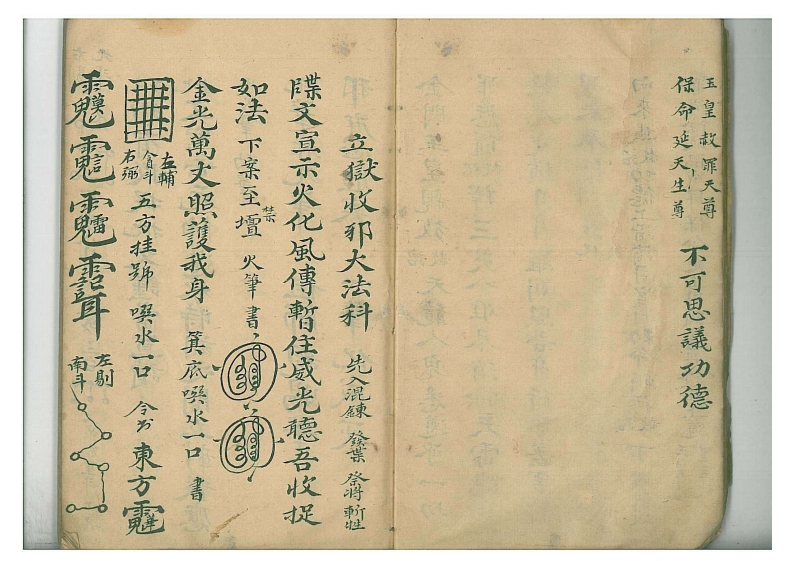 玉皇赦罪天尊
保命延生天尊
不可思議功德
立獄收邪大法科 先入混鍊 發葉 祭將斬牲
牒文宣示火化風傳暫住威光聽吾收捉
如法 下案至禁壇 火筆書
金光萬丈照護我身 箕底噀水一口 書
左輔 貪斗 右弼 五方挂號 噀水一口 令書 東方
左剔 南斗